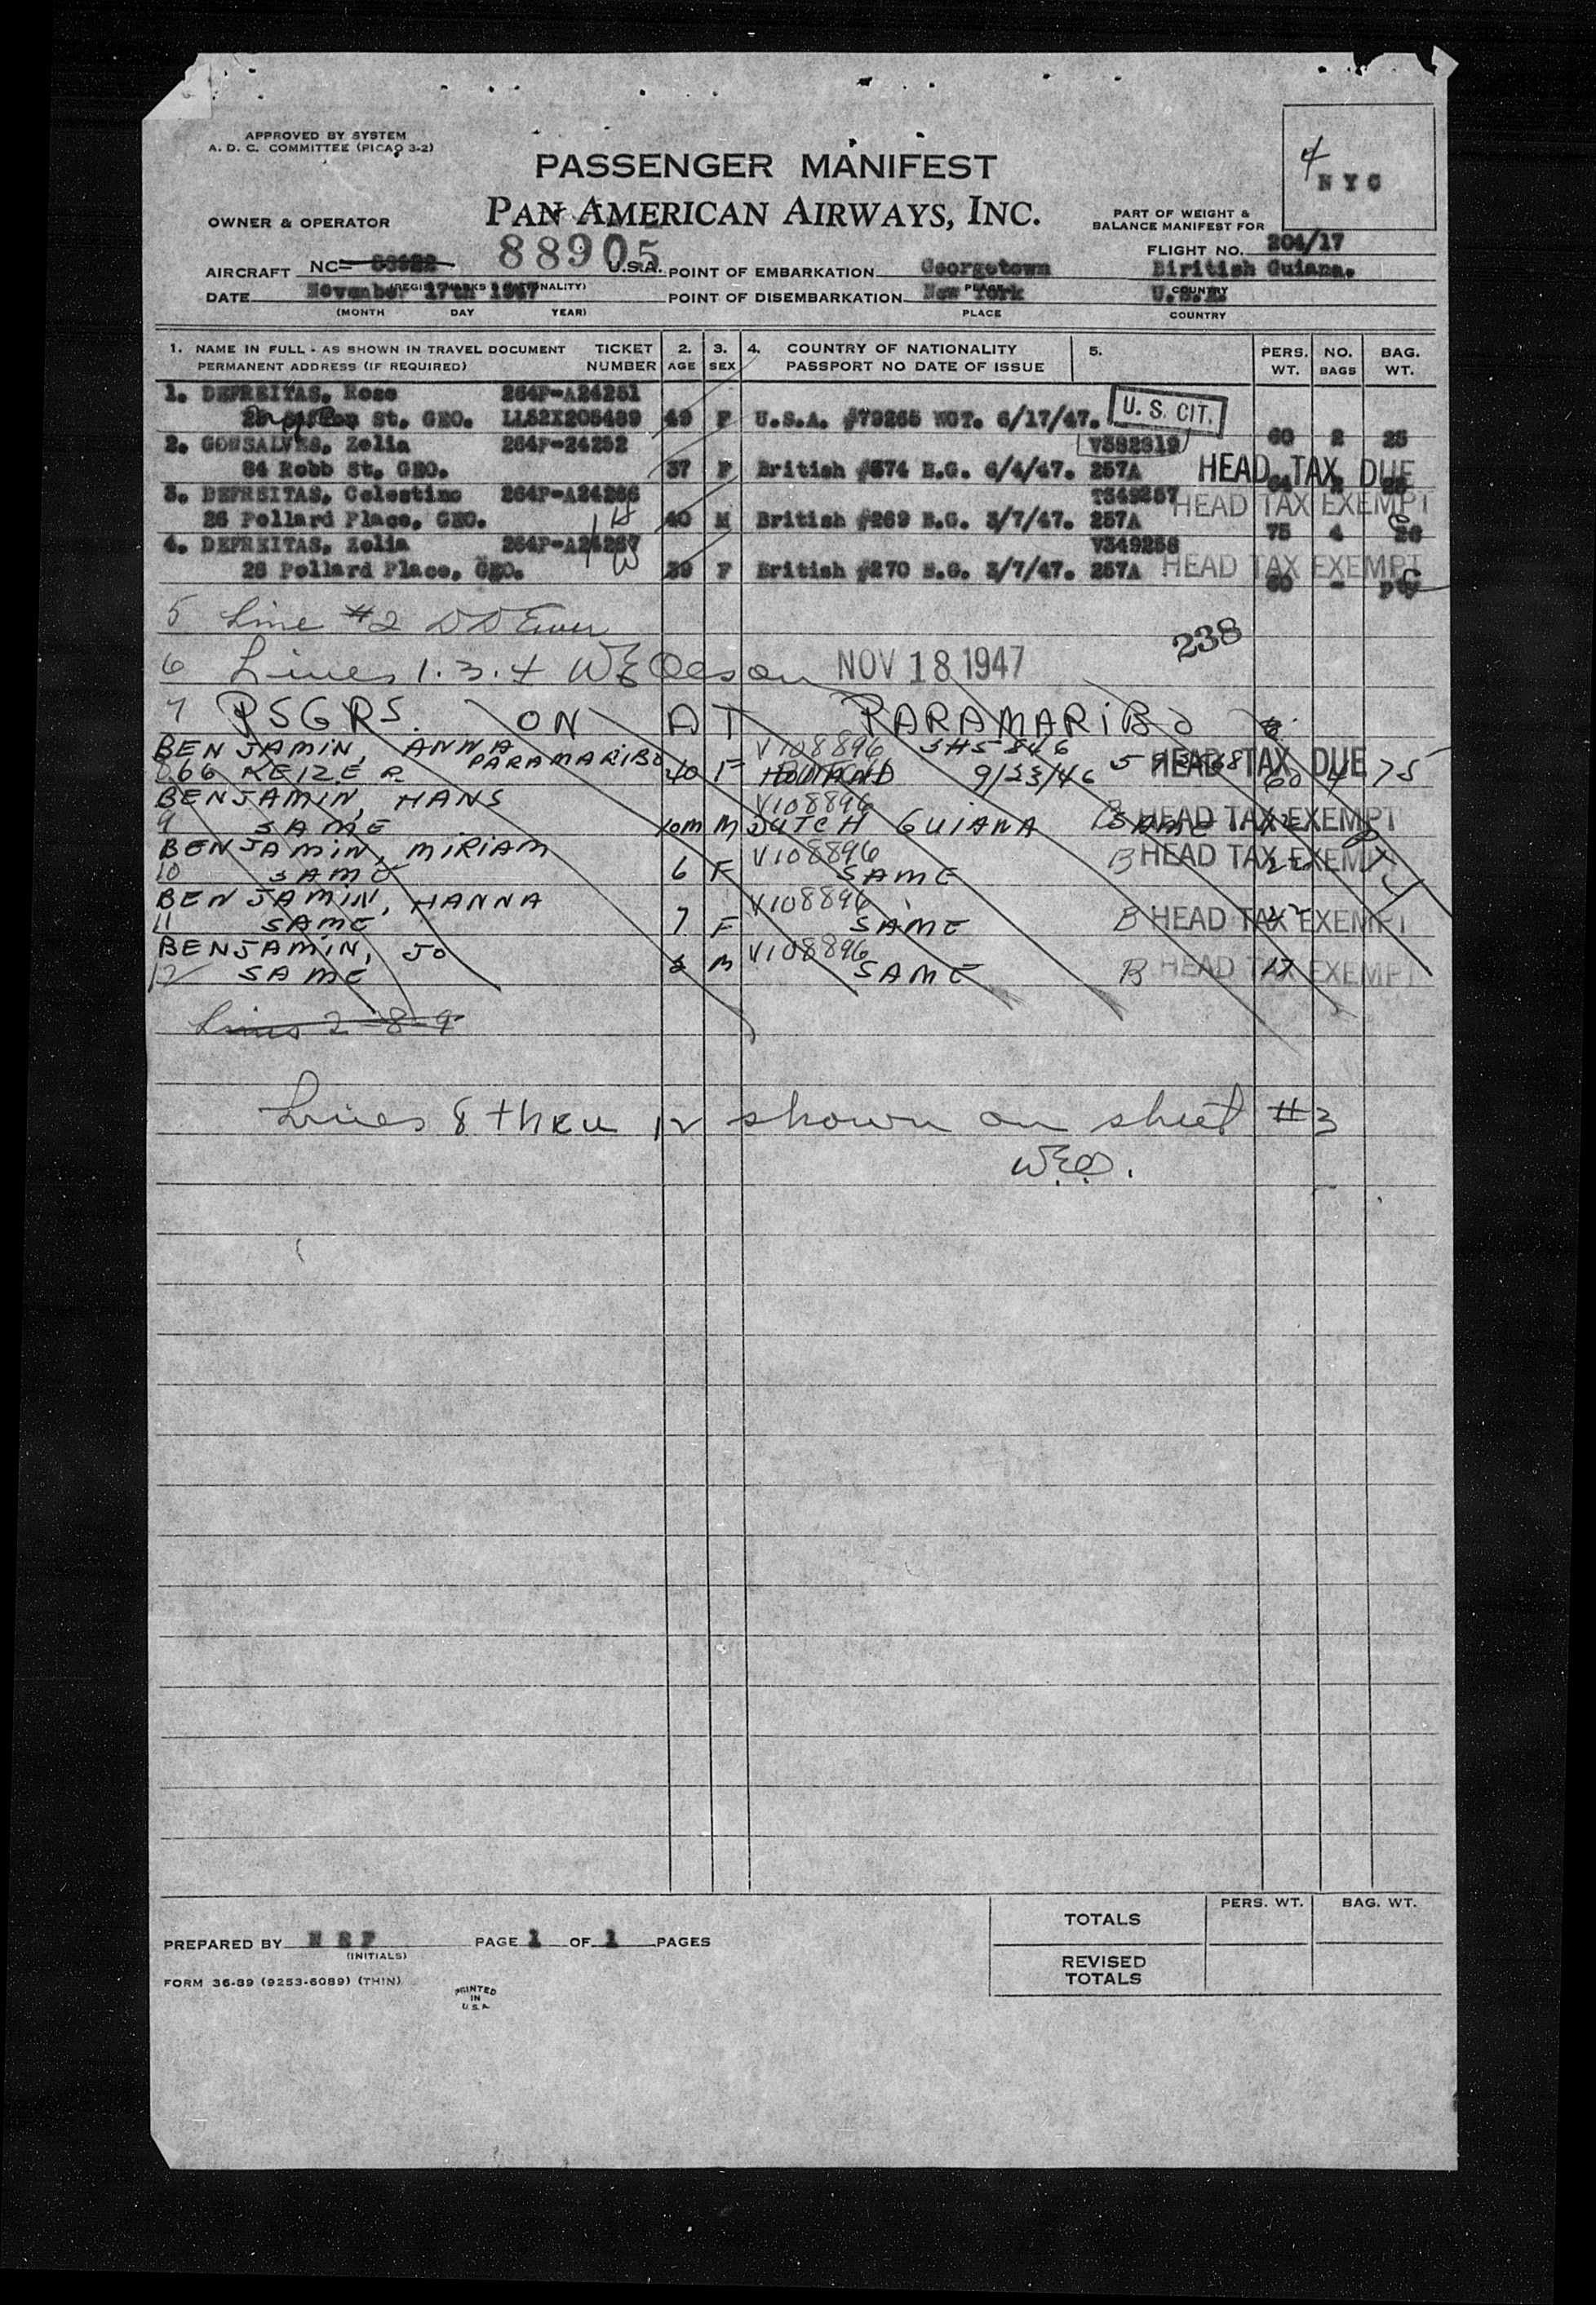 APPROVED BY SYSTEM
A. D. C. COMMITTEE (PICAO 3-2)
4
N Y C
PASSENGER MANIFEST
PAN AMERICAN AIRWAYS, INC.
OWNER & OPERATOR
PART OF WEIGHT &
BALANCE MANIFEST FOR
FLIGHT NO. 204/17
88905
AIRCRAFT NC- U.S.A. POINT OF EMBARKATION Georgetown Biritish Guiana.
(REGIS. MARKS & NATIONALITY) PLACE COUNTRY
DATE November 17th 1947 POINT OF DISEMBARKATION New York U.S.A.
(MONTH DAY YEAR) PLACE COUNTRY
1. NAME IN FULL - AS SHOWN IN TRAVEL DOCUMENT TICKET 2. 3. 4. COUNTRY OF NATIONALITY 5. PERS. NO. BAG.
PERMANENT ADDRESS (IF REQUIRED) NUMBER AGE SEX PASSPORT NO DATE OF ISSUE WT. BAGS WT.
1. DEFREITAS, Rose 264P-A24251
St, GEO. LL52X205489 49 F U.S.A. #79265 WGT. 6/17/47. U. S. CIT.
60 2 25
2. GONSALVES, Zelia 264P-24252 V382619
84 Robb St. GEO. 37 F British #574 B.G. 6/4/47. 257A HEAD TAX DUE
3. DEFREITAS, Celestino 264P-A24266 HEAD TAX EXEMPT
26 Pollard Place, GEO. 40 M British #269 B.G. 3/7/47. 257A
75 4
4. DEFREITAS, Zelia 264P-A24267 V349256
26 Pollard Place, GEO. 39 F British #270 B.G. 3/7/47. 257A HEAD TAX EXEMPT
60 -
5 Line #2
6 Lines 1.3.4 NOV 18 1947 238
7 PSGRS. ON AT PARAMARIBO
BENJAMIN, ANNA PARAMARIBO V108896
8 66 KEIZER 40 F 9/23/46 HEAD TAX DUE 60 4 75
BENJAMIN, HANS V108896
9 SAME 10m M DUTCH GUIANA B SAME HEAD TAX EXEMPT
BENJAMIN, MIRIAM V108896
10 SAME 6 F SAME B HEAD TAX EXEMPT
BENJAMIN, HANNA V108896
11 SAME 7 F SAME B HEAD TAX EXEMPT
BENJAMIN, JO V108896
12 SAME M SAME B HEAD TAX EXEMPT
Lines 2-8-9
Lines 8 thru 12 shown on sheet #3
W.E.O.
TOTALS PERS. WT. BAG. WT.
PREPARED BY (INITIALS) PAGE 1 OF 1 PAGES
REVISED
TOTALS
FORM 36-89 (9253-6089) (THIN)
PRINTED
IN
U.S.A.